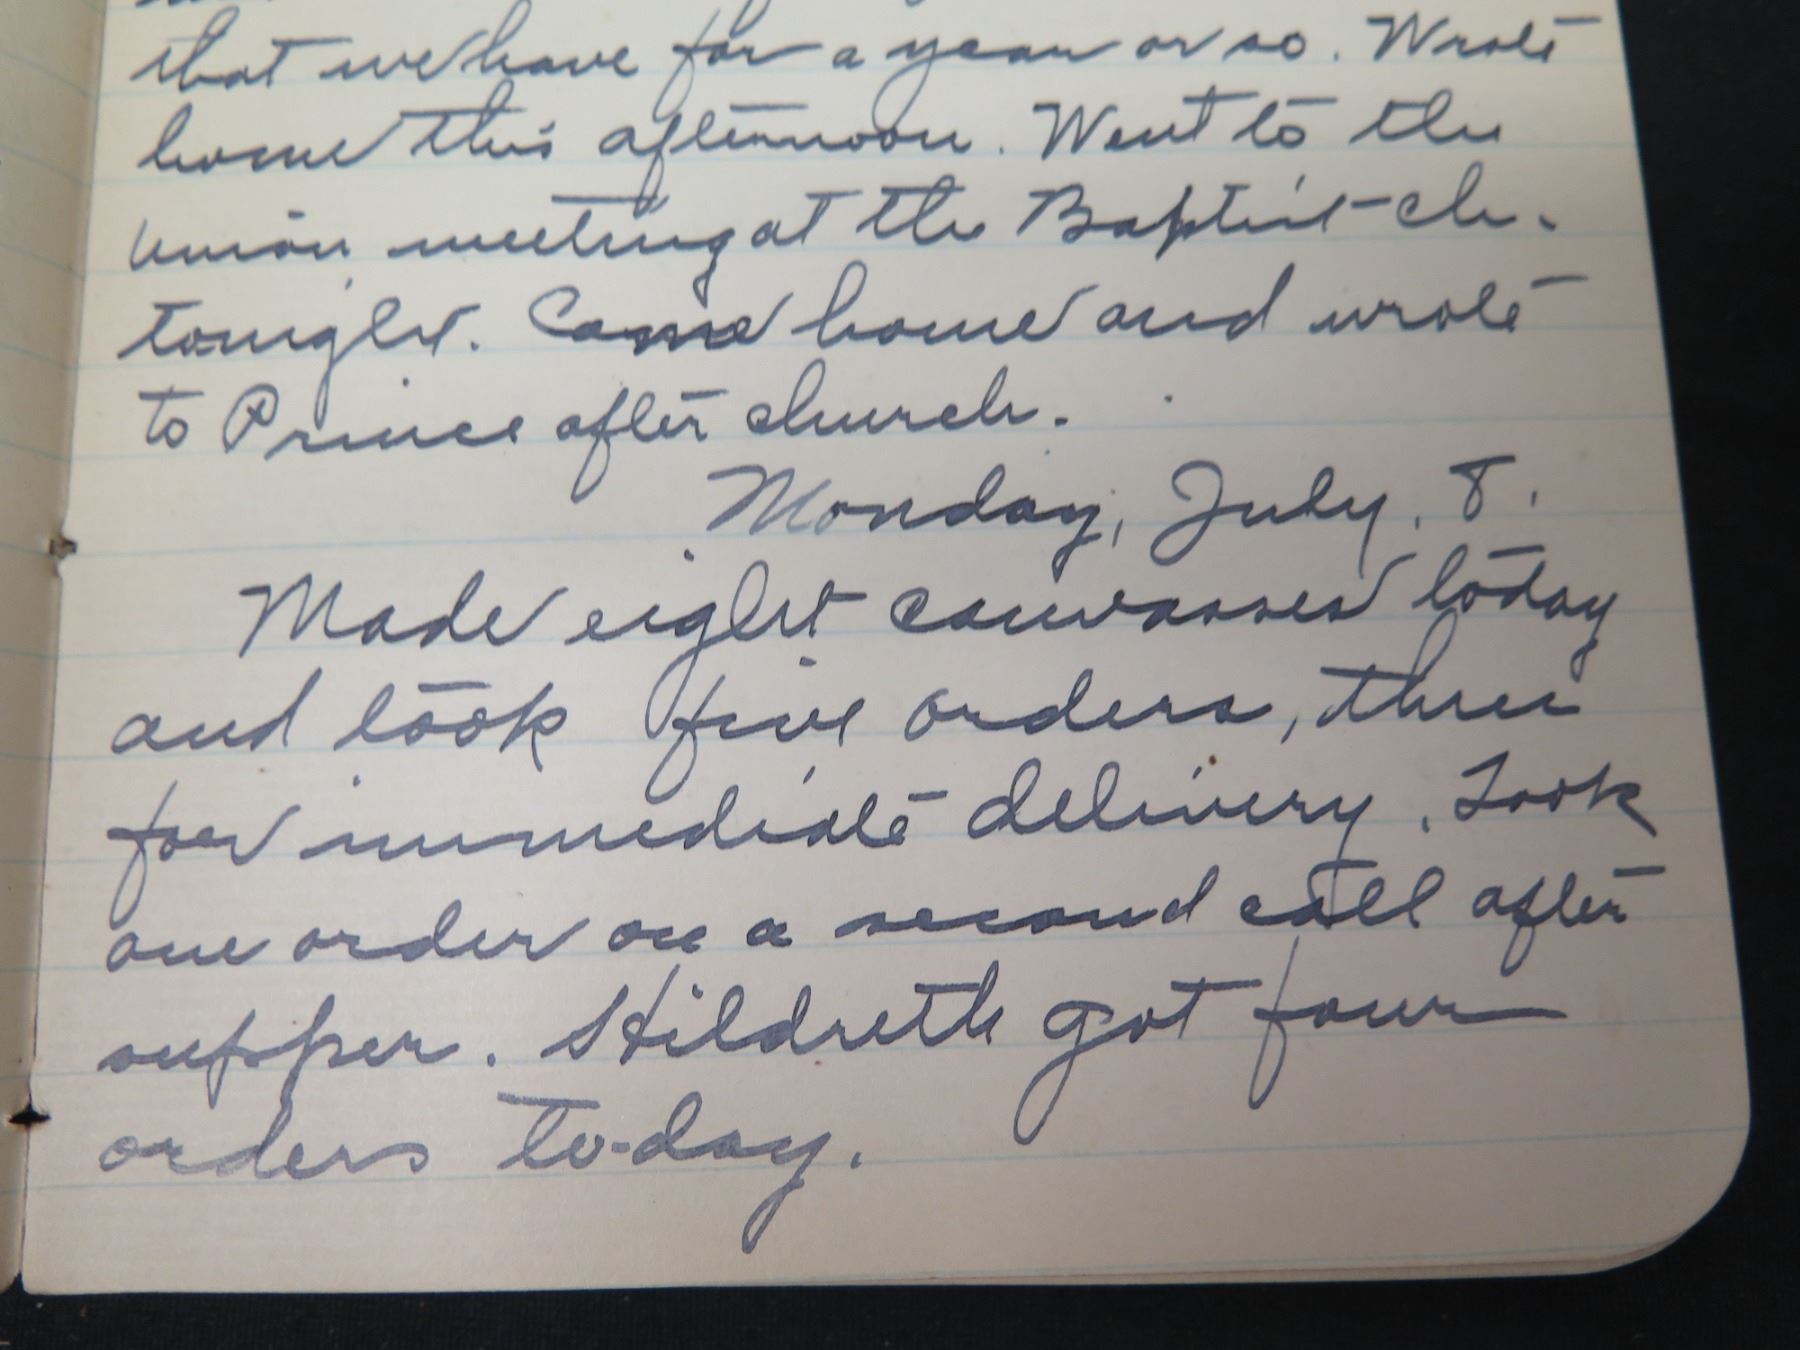 that we have for a year or so. Wrote
home this afternoon. Went to the
union meeting at the Baptist ch.
tonight. Came home and wrote
to Prince after church.
Monday, July. 8.
Made eight canvasses today
and took five orders, three
for immediate delivery. Took
one order on a second call after
supper. Hildreth got four
orders to-day.